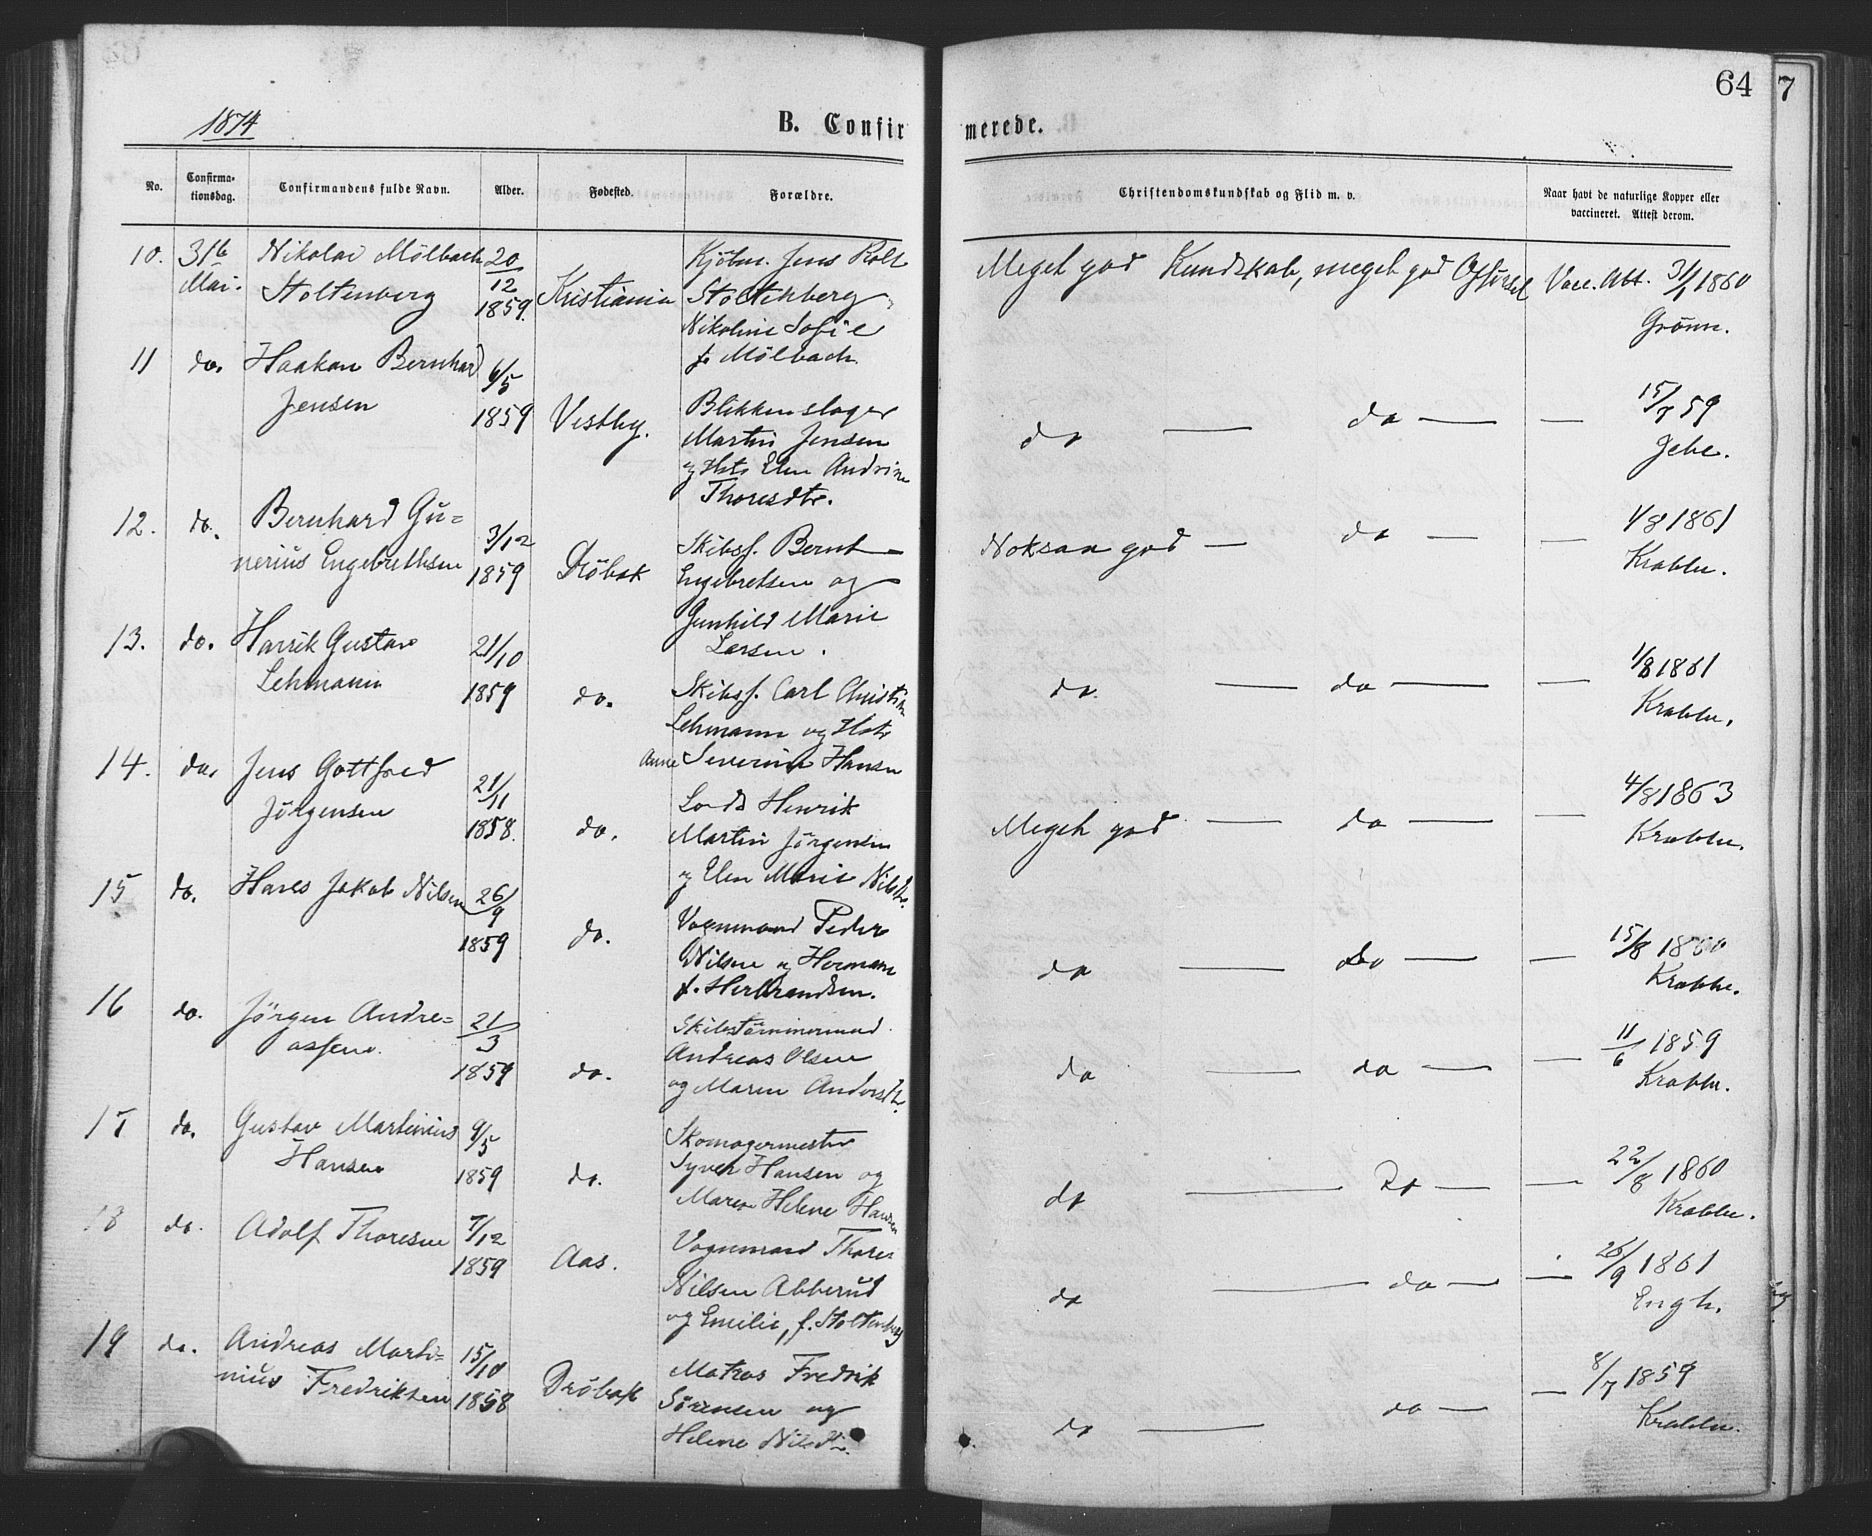 64
7
1874
B. Confirmerede.
No.
Confirma-
tionsdag.
Confirmandens fulde Navn.
Alder.
Fødested.
Forældre.
Christendomskundskab og Flid m. v.
Naar havt de naturlige Kopper eller
vaccineret. Attest derom.
10. 31te Mai. Nikolai Mölbach
Stoltenberg
20/12 1859. Kristiania
Kjöbm. Jens
Stoltenberg
Nikoline Sofie
f. Mölbach
Meget god Kundskab, meget god Opförsel Vacc. Att. 31/1 1860
Grönn.
11 do. Haakon Bernhard
Jensen
6/5 1859 Vestby.
Blikkenslager
Martin Jensen
og Hstr Elen Andrine
Thoresdtr.
do — do — — 15/7 59
Jebe.
12. do. Bernhard Gu=
nerius Engebrethsen
3/12 1859 Dröbak
Skibsf. Bernt
Engebretsen og
Gunhild Marie
Larsen.
Noksaa god — do — — 1/8 1861
Krabbe.
13. do. Henrik Gustav
Lehmann
21/10 1859 do.
Skibsf. Carl Christian
Lehmann og Hstr
Anne Severine Hansen
do. — do — — 1/8 1861
Krabbe.
14. do. Jens Gottfred
Jörgensen
21/11 1858. do.
Lods Henrik
Martin Jörgensen
og Elen Marie Nilsdtr.
Meget god — do — — 4/8 1863
Krabbe.
15 do. Hans Jakob Nilsen
26/9 1859 do.
Vognmand Peder
Nilsen og
f. Herbrandsen.
do — do — — 15/8 1860
Krabbe.
16 do. Jörgen Andre=
assen.
21/3 1859 do.
Skibstömmermand
Andreas Olsen
og Maren Andersdtr.
do — do — — 11/6 1859
Krabbe.
17 do. Gustav Martinius
Hansen
9/5 1859 do.
Skomagermester
Syver Hansen og
Maren Helene Hansen
do — do — — 22/8 1860
Krabbe.
18 do. Adolf Thoresen
7/12 1859 Aas.
Vognmand Thores
Nilsen Abberud
og Emilie, f. Stoltenberg
do — do — — 26/9 1861
Engh.
19 do. Andreas Marti=
nius Fredriksen
15/10 1858 Dröbak
Matros Fredrik
Sörensen og
Helene Nilsdtr.
do — do — — 8/7 1859
Krabbe.